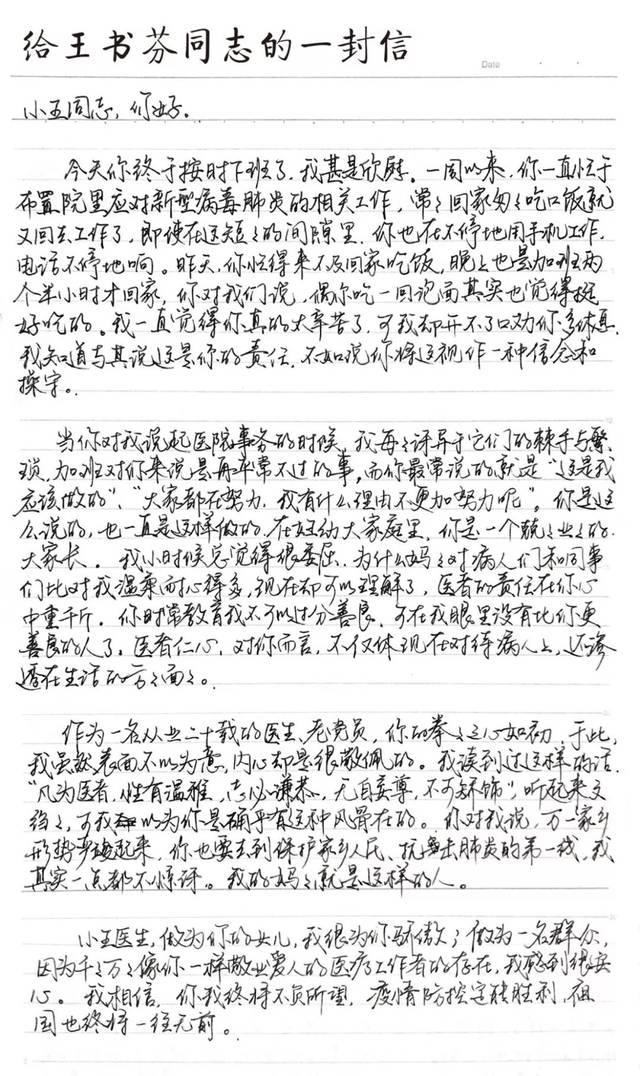 给王书芬同志的一封信
Date
小王同志，你好。
今天你终于按时下班了，我甚是欣慰。一周以来，你一直忙于
布置院里应对新型病毒肺炎的相关工作，常々回家匆々吃口饭就
又回去工作了，即使在这短々的间隙里，你也在不停地用手机工作，
电话不停地响。昨天，你忙得来不及回家吃饭，晚上也是加班两
个半小时才回家，你对我们说，偶尔吃一回泡面其实也觉得挺
好吃的。我一直觉得你真的太辛苦了，可我却开不了口劝你多休息，
我知道与其说这是你的责任，不如说你将这视作一种信念和
操守。
当你对我说起医院事务的时候，我每々讶异于它们的棘手与繁
琐，加班对你来说是再平常不过的事，而你最常说的就是“这是我
应该做的”、“大家都在努力，我有什么理由不更加努力呢”。你是这
么说的，也一直是这样做的，在妇幼大家庭里，你是一个兢々业々的
大家长。我小时候总觉得很委屈，为什么妈々对病人们和同事
们比对我温柔耐心得多，现在却可以理解了，医者的责任在你心
中重千斤。你时常教育我不可以过分善良，可在我眼里没有比你更
善良的人了，医者仁心，对你而言，不仅体现在对待病人上，还渗
透在生活的方々面々。
作为一名从业二十载的医生、老党员，你的拳々之心如初，于此，
我虽然表面不以为意，内心却是很敬佩的。我读到过这样的话，
“凡为医者，性存温雅，志必谦恭，无自妄尊，不可矫饰”，听起来文
绉々，可我却以为你是确乎有这种风骨在的。你对我说，万一家乡
形势严峻起来，你也要去到保护家乡人民、抗击肺炎的第一线，我
其实一点都不惊讶。我的妈々就是这样的人。
小王医生，做为你的女儿，我很为你骄傲；做为一名群众，
因为千々万々像你一样敬业爱人的医疗工作者的存在，我感到很安
心。我相信，你我终将不负所望，疫情防控定能胜利，祖
国也终将一往无前。